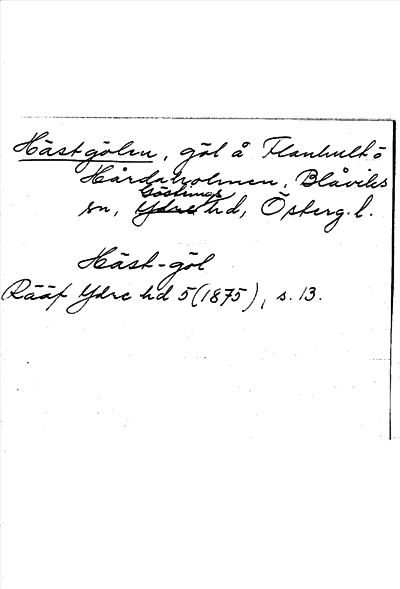 Hästgölen, göl å Flanhult o
Hårdaholmen, Blåviks
sn, Göstrings hd, Österg. l.
Häst-göl
Rääf Ydre hd 5 (1875), s. 13.